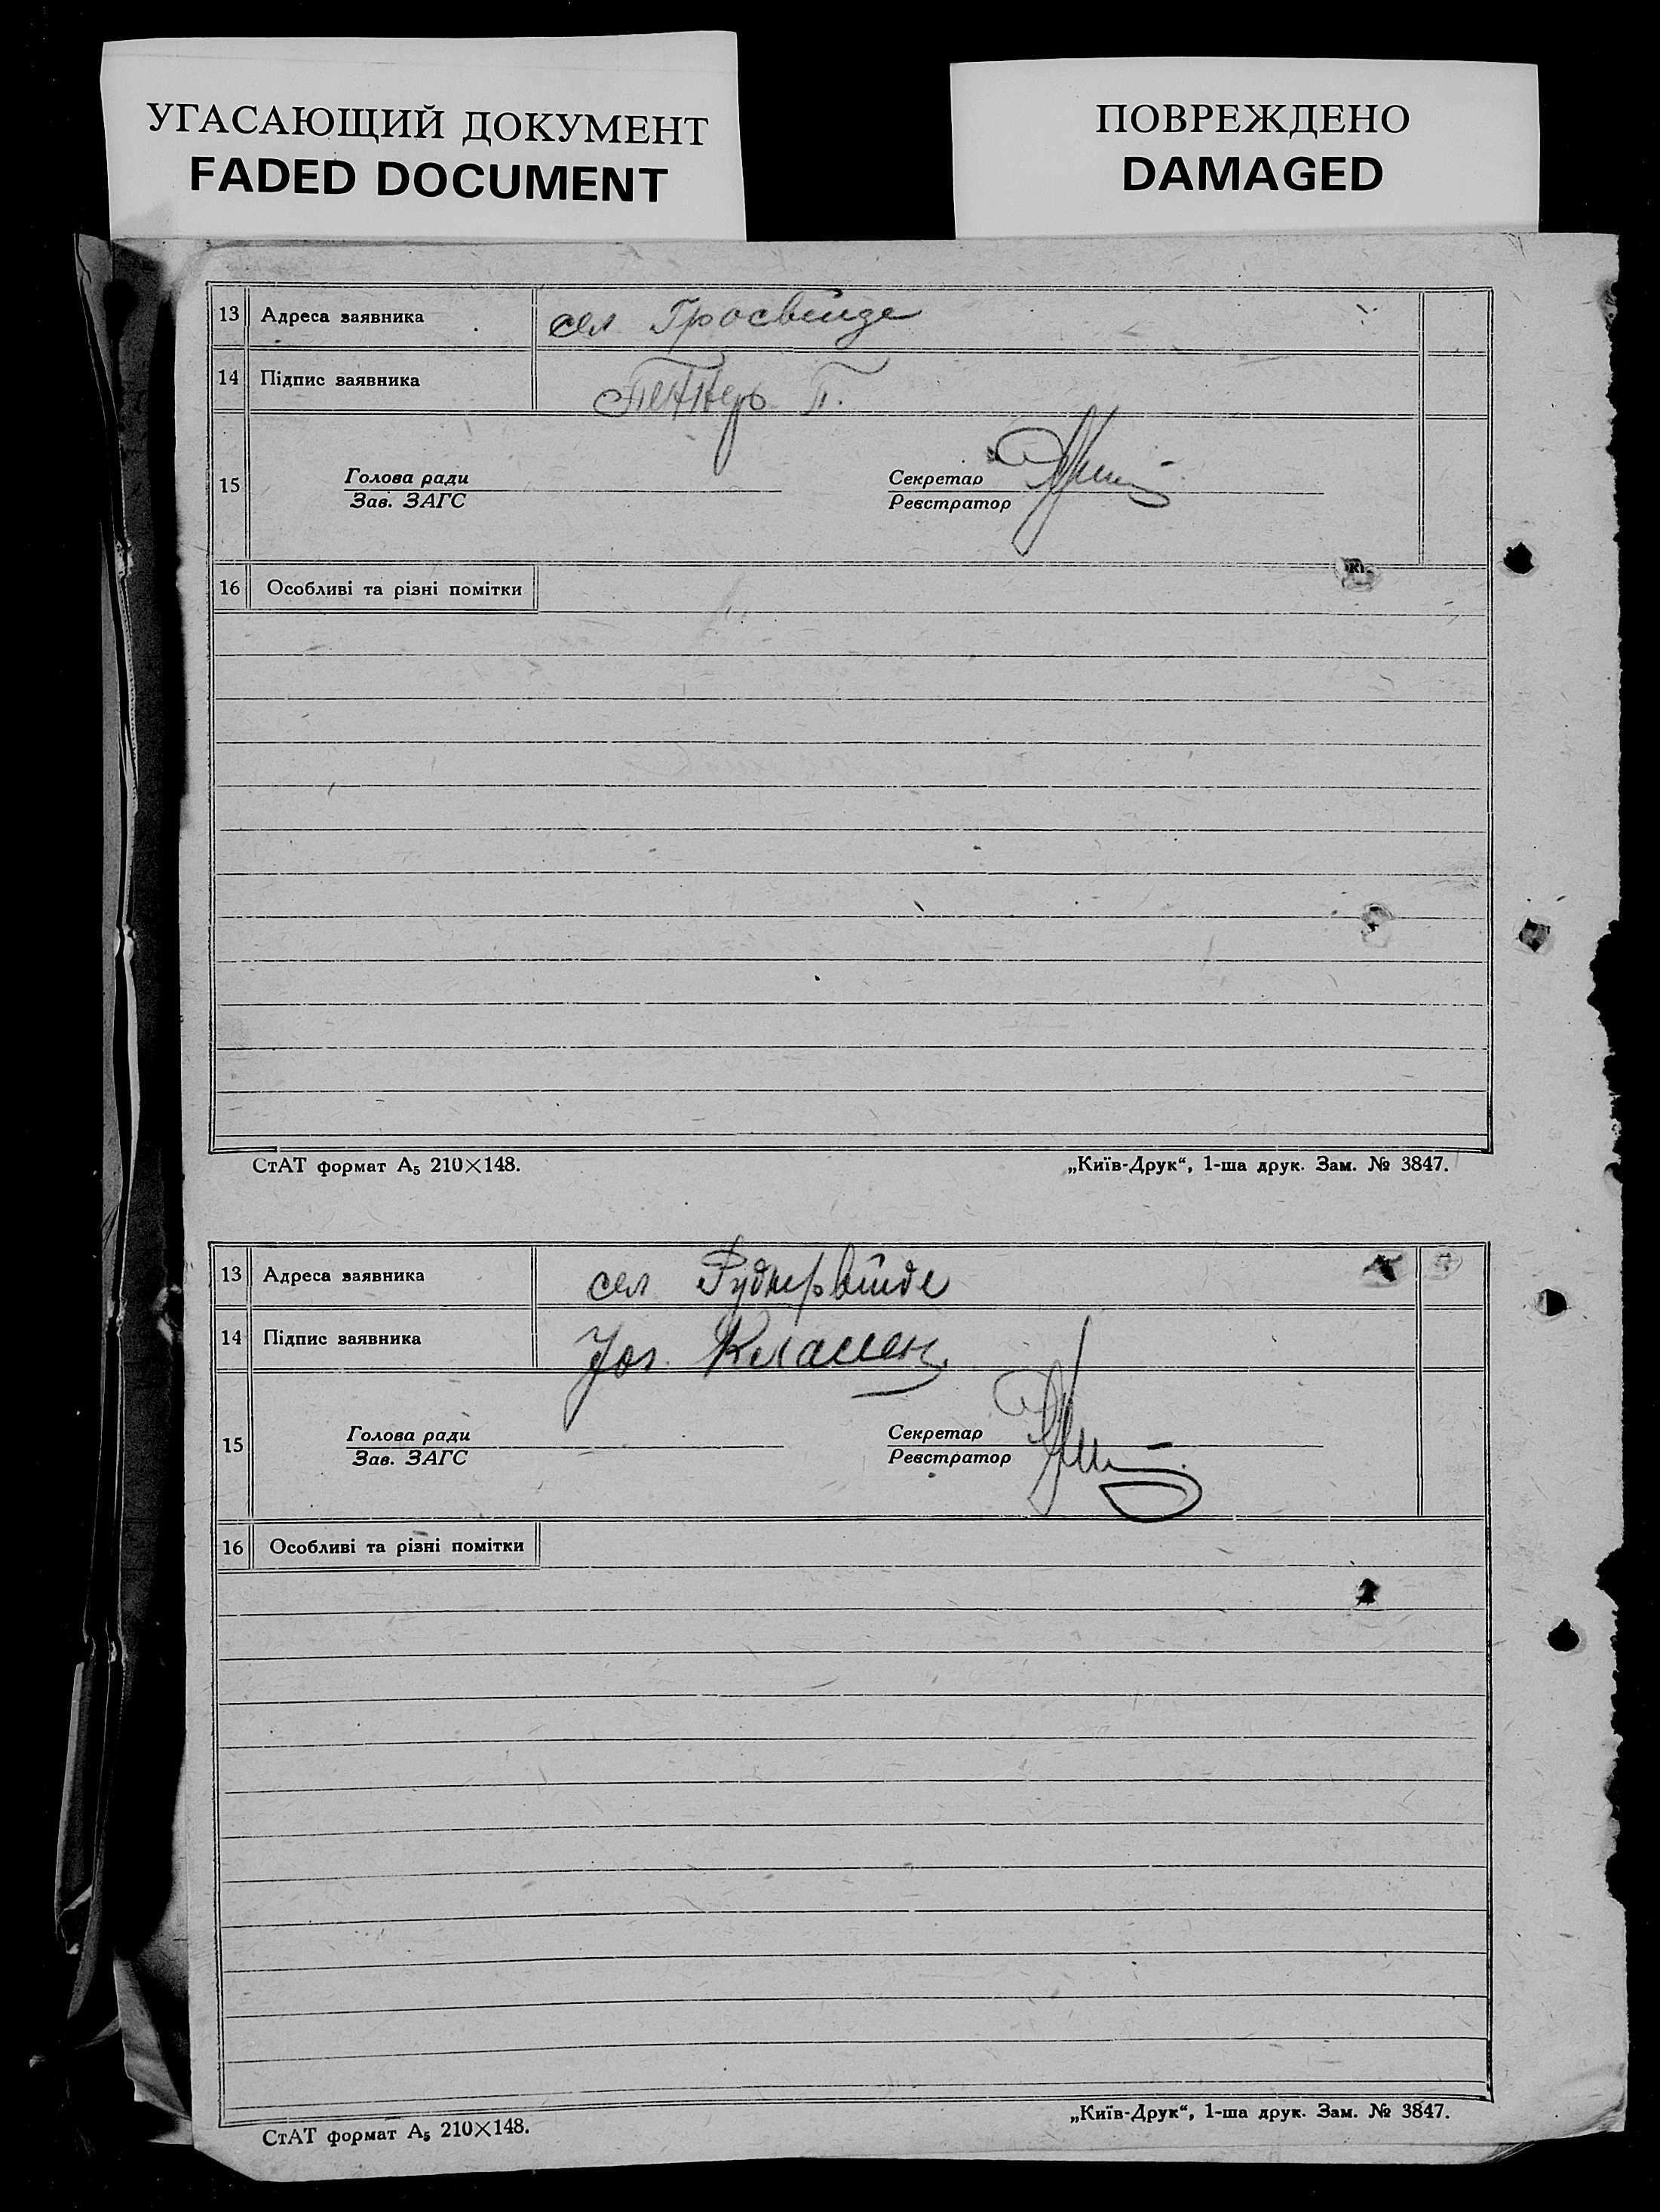 УГАСАЮЩИЙ ДОКУМЕНТ
FADED DOCUMENT
ПОВРЕЖДЕНО
DAMAGED
13 Адреса заявника сел Гросвейде
14 Підпис заявника Пеннер П.
15 Голова ради Секретар
Зав. ЗАГС Реєстратор
16 Особливі та різні помітки
СтАТ формат А₅ 210×148. „Київ-Друк“, 1-ша друк. Зам. № 3847.
13 Адреса заявника сел Руднервейде
14 Підпис заявника Классен
15 Голова ради Секретар
Зав. ЗАГС Реєстратор
16 Особливі та різні помітки
СтАТ формат А₅ 210×148. „Київ-Друк“, 1-ша друк. Зам. № 3847.